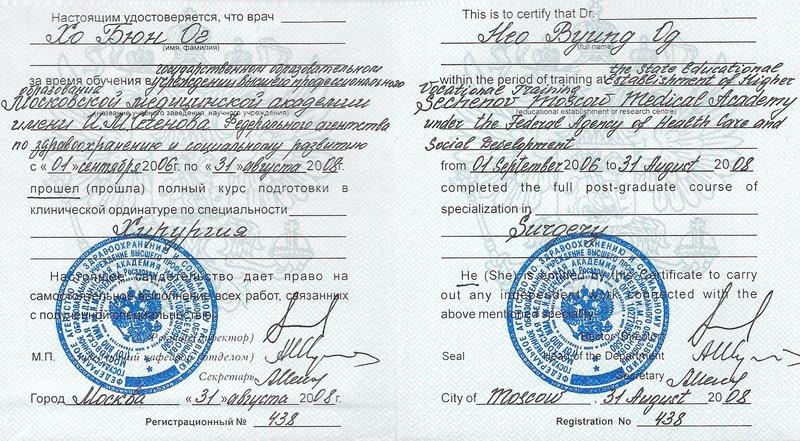 Настоящим удостоверяется, что врач
Хо Бюн Ог
(имя, фамилия)
государственном образовательном
за время обучения в учреждении высшего профессионального
образования
Московской медицинской академии
(название учебного заведения, научного учреждения)
имени И.М.Сеченова Федерального агентства
по здравоохранению и социальному развитию
с «01» сентября 2006г. по «31» августа 2008г.
прошел (прошла) полный курс подготовки в
клинической ординатуре по специальности
Хирургия
Настоящее свидетельство дает право на
самостоятельное выполнение всех работ, связанных
с полученной специальностью
Ректор (директор)
М.П. Заведующий кафедрой (отделом)
Секретарь
Город Москва «31» августа 2008г.
Регистрационный № 438
This is to certify that Dr.
Heo Byung Og
(full name)
the State Educational
within the period of training at Establishment of Higher
Vocational Training
Sechenov Moscow Medical Academy
(educational establishment or research centre)
under the Federal Agency of Health Care and
Social Development
from 01 September 2006 to 31 August 2008
completed the full post-graduate course of
specialization in
Surgery
He (She) is entitled by this Certificate to carry
out any independent work connected with the
above mentioned speciality
Rector (Director)
Seal Head of the Department
Secretary
City of Moscow, 31 August 2008
Registration No 438